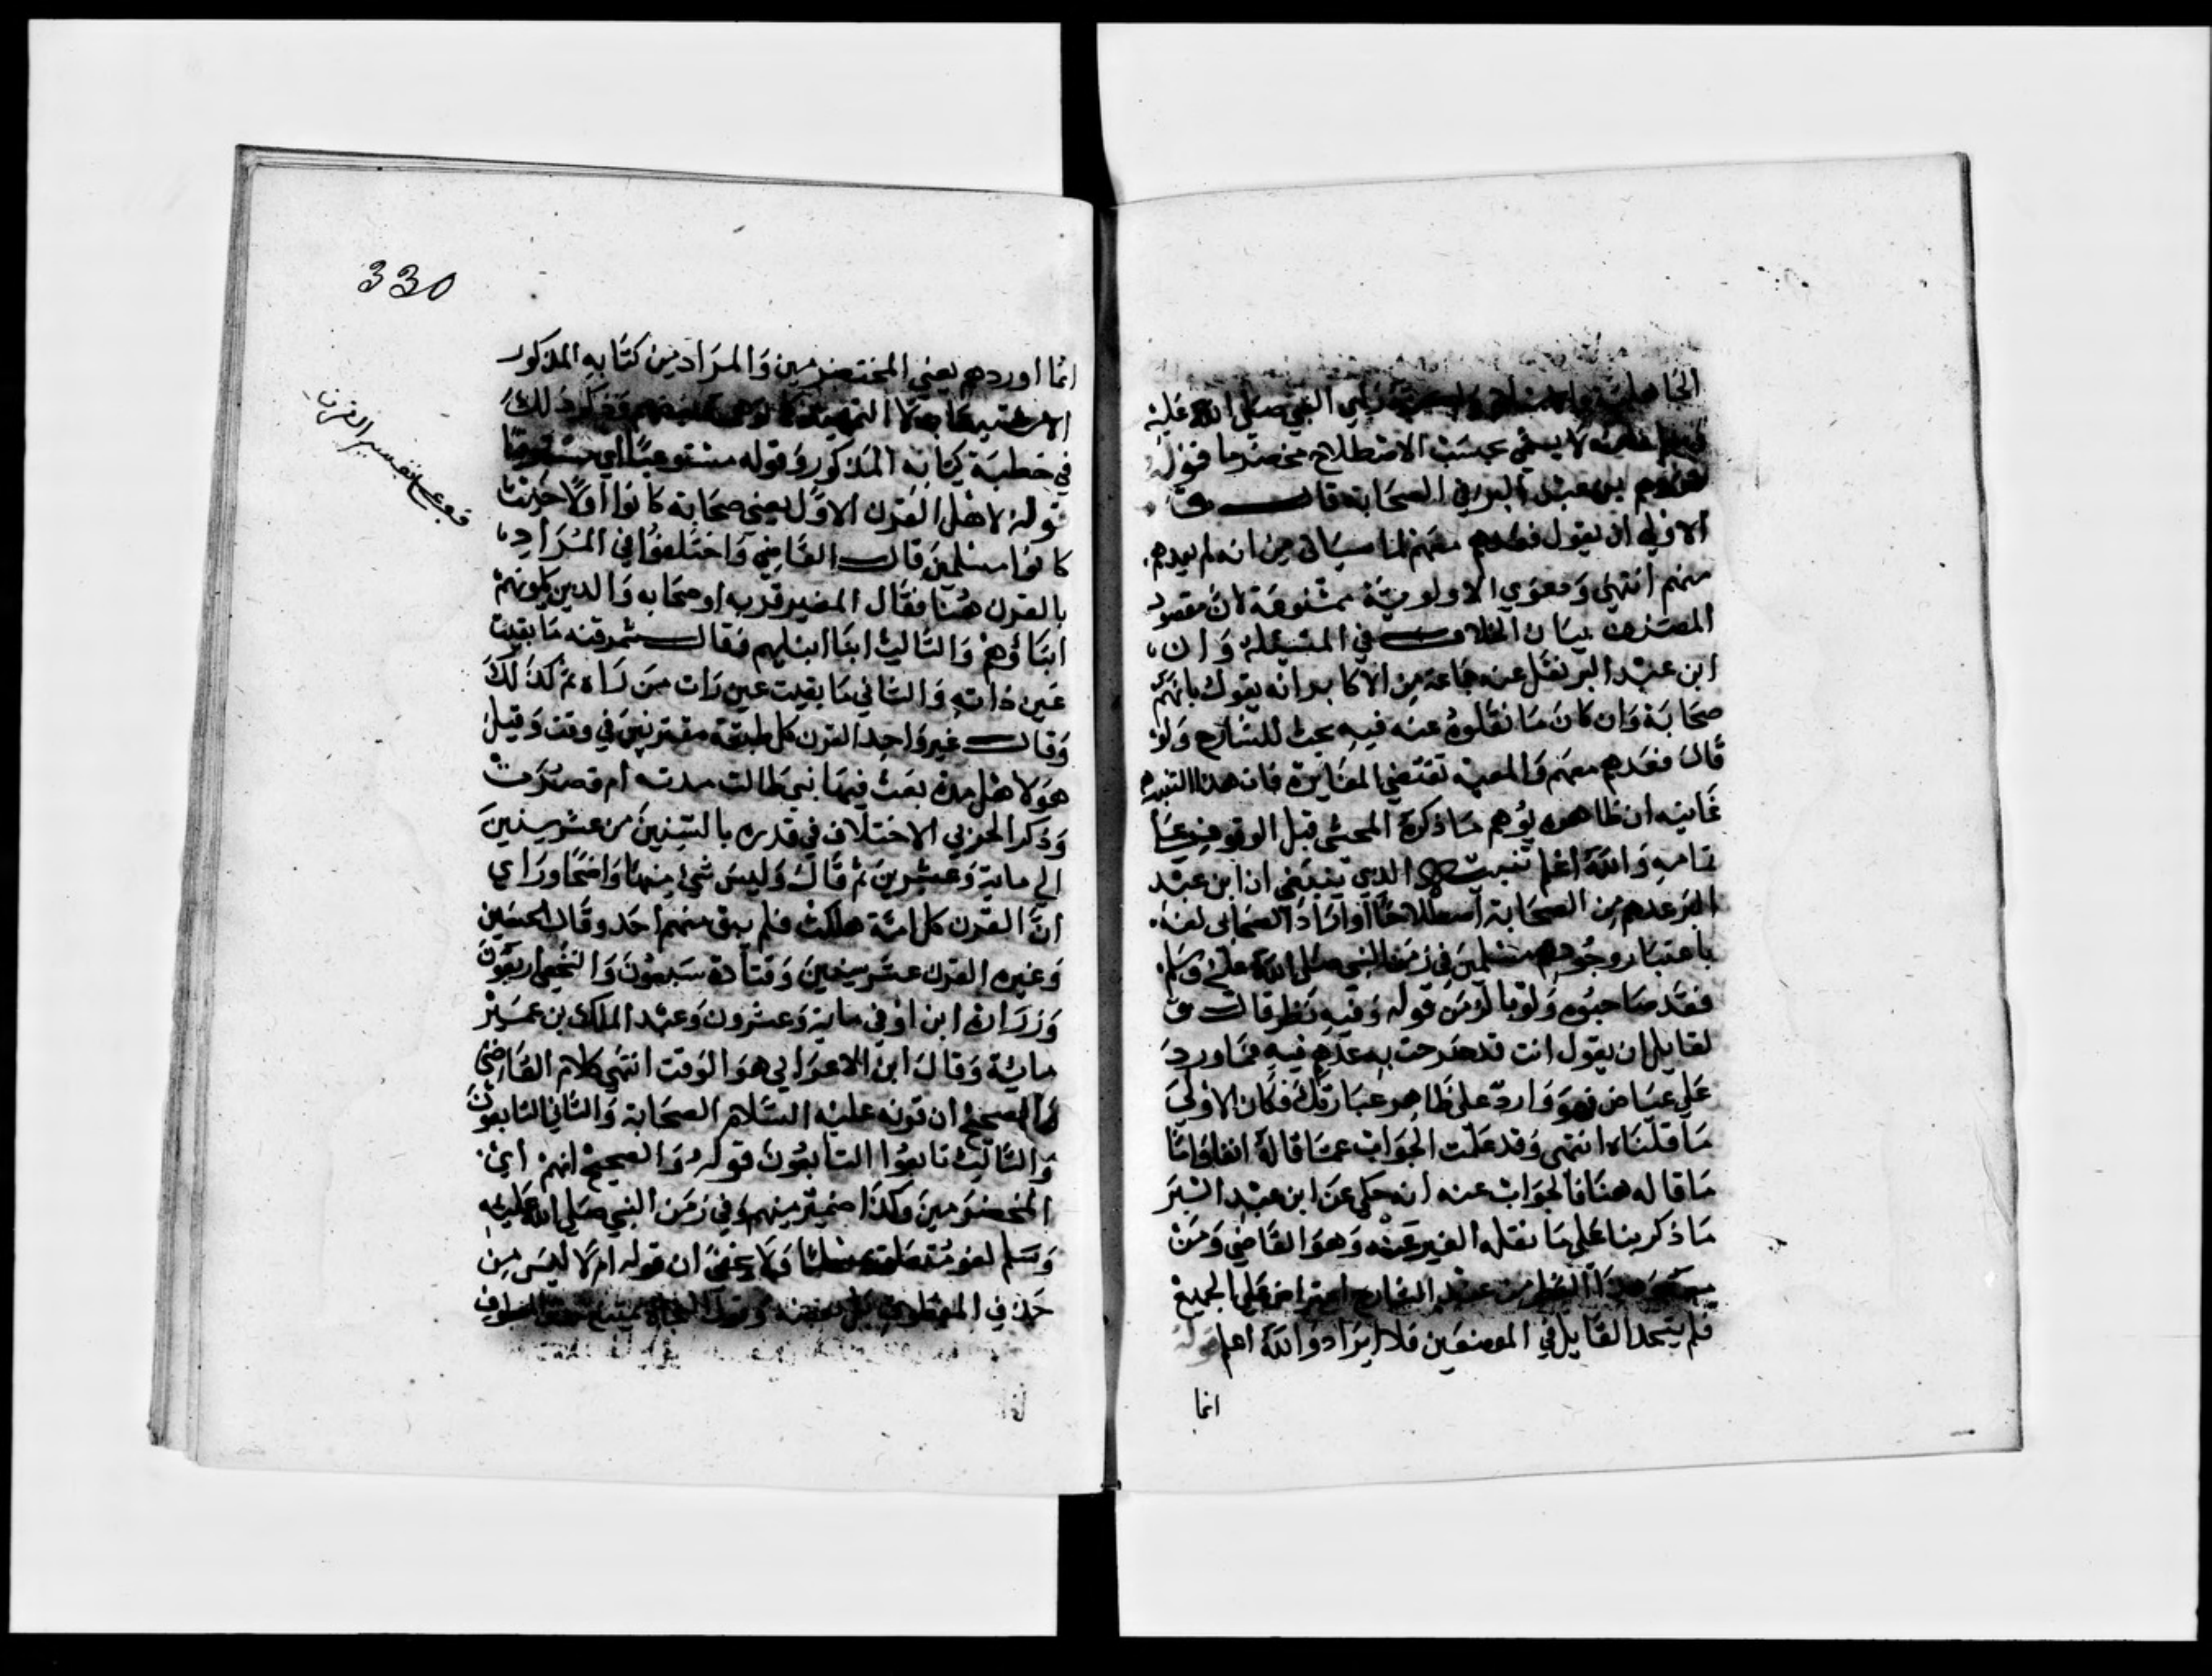 الجاهلية النبي صلى الله عليه
لا يسمى بحسب الاصطلاح مخضرما قوله
بن عبد البر في الصحابة قال ق
الاولى ان يقول فعدهم معهم لما سياتي من انه لم يعدهم
منهم انتهى ودعوي الاولوية ممنوعة لان مقصود
المصنف بيان الخلاف في المسيلة وان
ابن عبد البر نقل عنه جماعة من الاكابر انه يقول بانهم
صحابة وان كان ما نقلوه عنه فيه بحث للشارح ولو
قال فعدهم معهم والمعية تقتضي المغايرة فان هذا التبرد
غايته ان ظاهره يوهم ما ذكره المحشى قبل الوقوف على
تمامه والله اعلم تنبيه الذي ينبغي ان ابن عبد
البر عدهم من الصحابة اصطلاحا او اراد الصحابى لغة
باعتبار وجودهم مسلمين في زمن النبي صلى الله عليه وسلم
فقد صاحبوه ولو بالزمن قوله وفيه نظر قال ق
لقايل ان يقول انت قد صرحت به عدهم فيه فما ورد
على عياض فهو وارد على ظاهر عبارتك فكان الاولى
ما قلناه انتهى وقد علمت الجواب عما قاله انفا واما
ما قاله هنا فالجواب عنه انه حكى عن ابن عبد البر
ما ذكر بنا على ما نقله الغير عنه وهو القاضي ومن
الشارح اعتراض على الجميع
فلم يتحد القايل في الموضعين فلا ايراد والله اعلم قوله
انما
330
انما اوردهم يعني المخضرمين والمراد من كتابه المذكور
الاستيعاب لا التمهيد ذلك
في خطبة كتابه المذكور وقوله مستوعبا اي
قوله لاهل القرن الاول يعني صحابة كانوا او لا
كانوا مسلمين قال القاضي واختلفوا في المراد
بالقرن هنا فقال المغير قربه اصحابه والدين يلونهم
ابناؤهم والثالث ابنا ابنايهم فقال شمر قرنه ما بقيت
عين راته والثاني ما بقيت عين رات من راه ثم كذلك
وقال غير واحد القرن كل طبقة مقترنين في وقت وقيل
هو لاهل مدة بعث فيها نبي طالت مدته ام قصرت
وذكر الحربي الاختلاف في قدره بالسنين من عشر سنين
الى ماية وعشرين ثم قال وليس شي منها واضحا وراي
ان القرن كل امة هلكت فلم يبق منهم احد وقال الحسن
وغيره القرن عشر سنين وقتادة سبعون والنخعي اربعون
وزرارة ابن اوفي ماية وعشرون وعبد الملك بن عمير
ماية وقال ابن الاعرابي هو الوقت انتهى كلام القاضي
والصحيح ان قرنه عليه السلام الصحابة والثاني التابعون
والثالث تابعوا التابعون قوله والصحيح انهم اي
المخضرمين وكذا ضمير منهم وفي زمن النبي صلى الله عليه
وسلم لغو متعلق ولا يخفى ان قوله ام لا ليس من
حذف
قف على تفسير القرن